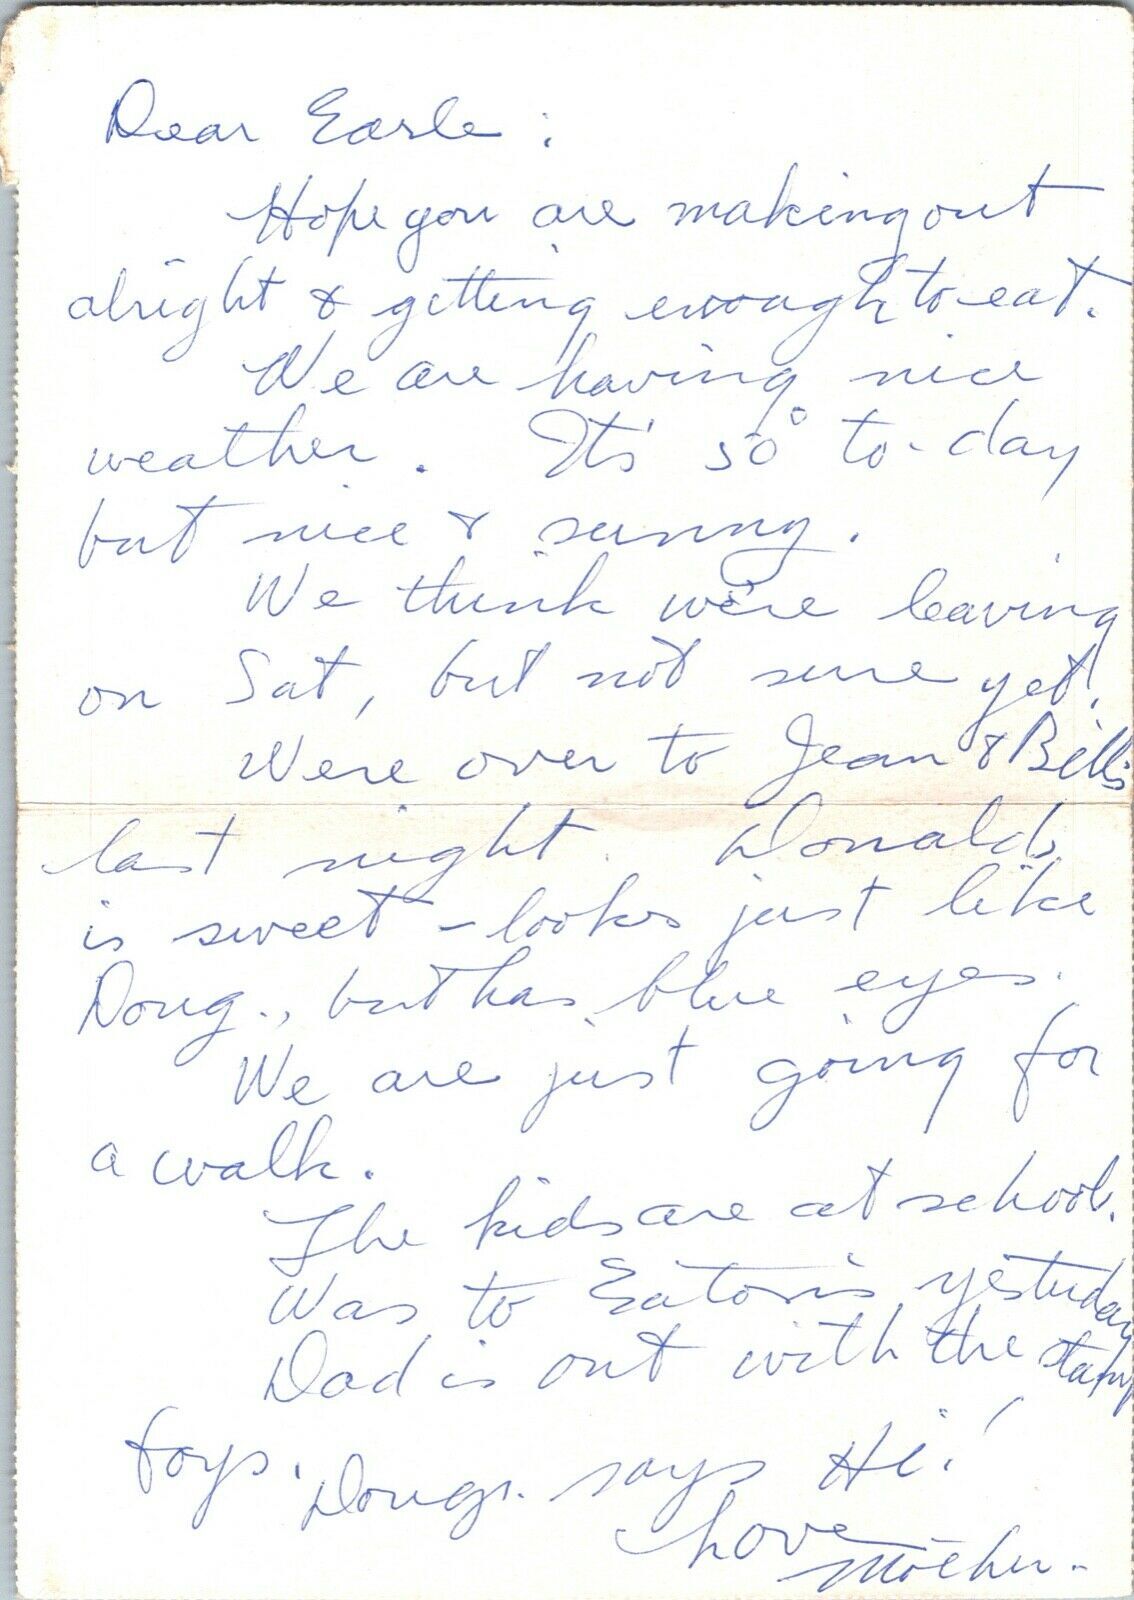 Dear Earle :
Hope you are making out
alright & getting enough to eat.
We are having nice
weather. It's 50° to-day
but nice & sunny.
We think we're leaving
on Sat, but not sure yet.
Were over to Jean & Bill's
last night. Donald
is sweet - looks just like
Doug., but has blue eyes.
We are just going for
a walk.
The kids are at school.
Was to Eaton's yesterday
Dad is out with the stamp
boys. Doug. says Hi!
Love
Mother.